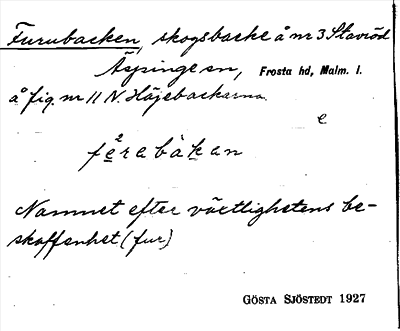 Furubacken, skogsbacke å nr 3 Slavröd
Äspinge sn, Frosta hd, Malm. l.
å fig. nr 11 N. Häjebackarna
e
fèrabàkan
Namnet efter växtlighetens be-
skaffenhet (fur)
GÖSTA SJÖSTEDT 1927